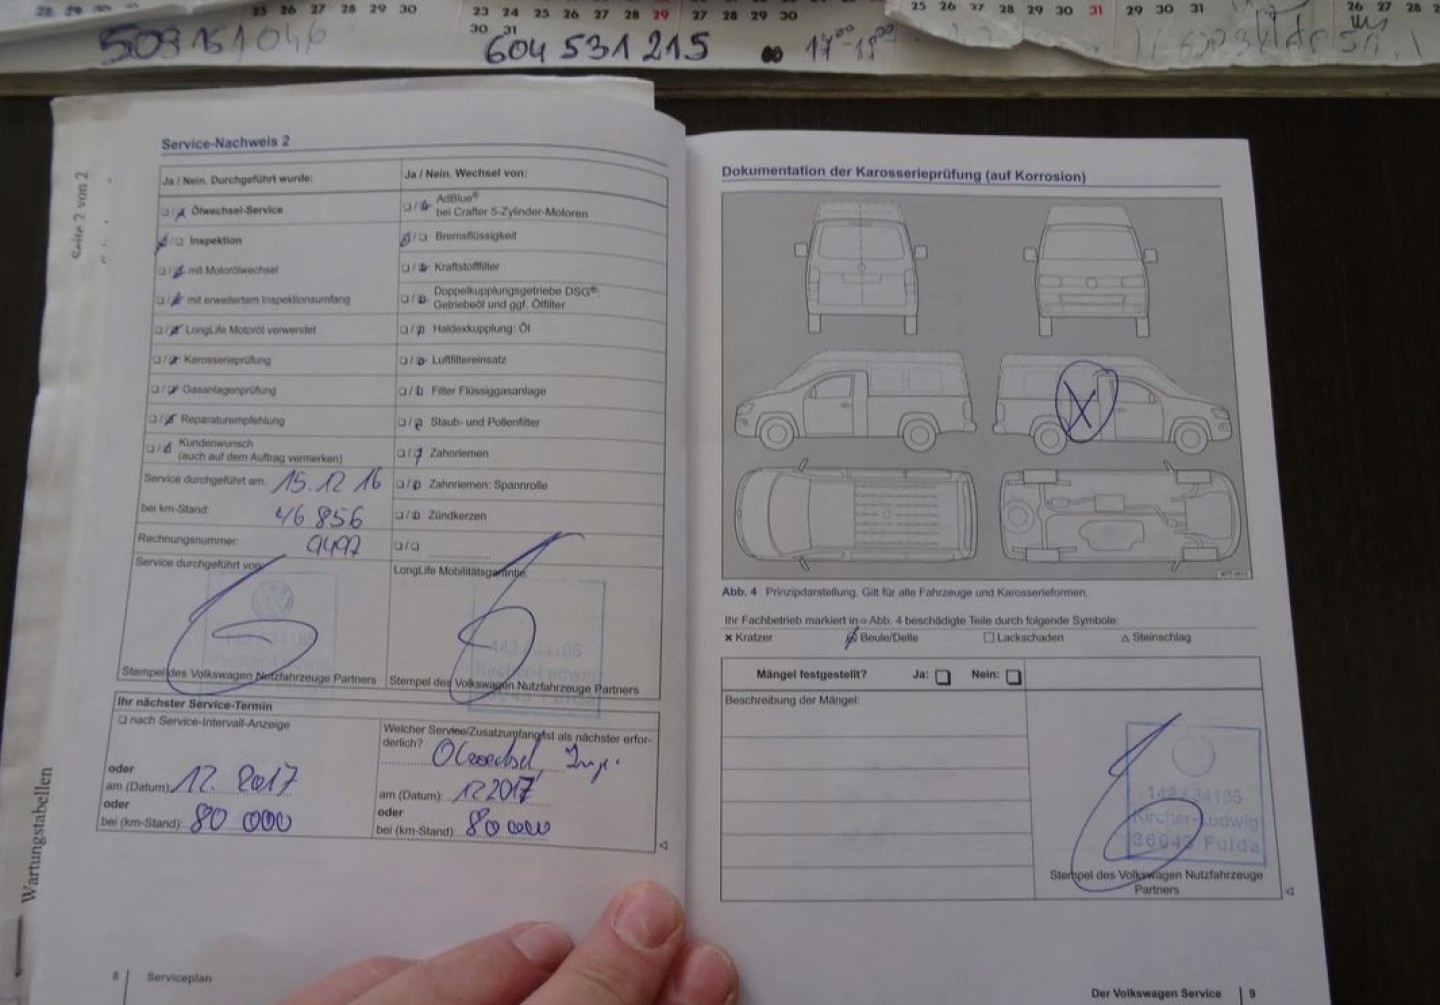 25 26 27 28 29 30
23 24 25 26 27 28 29
30 31
27 28 29 30
25 26 27 28 29 30 31
29 30 31
26 27 28
604 531 215
17⁰⁰-18⁰⁰
Seite 2 von 2
Wartungstabellen
Service-Nachweis 2
Ja / Nein. Durchgeführt wurde:
Ölwechsel-Service
Inspektion
mit Motorölwechsel
mit erweitertem Inspektionsumfang
LongLife Motoröl verwendet
Karosserieprüfung
Gasanlagenprüfung
Reparaturempfehlung
Kundenwunsch
(auch auf dem Auftrag vermerken)
Service durchgeführt am: 15.12 16
bei km-Stand: 46 856
Rechnungsnummer: 9497
Service durchgeführt von:
Stempel des Volkswagen Nutzfahrzeuge Partners
Ja / Nein. Wechsel von:
AdBlue®
bei Crafter 5-Zylinder-Motoren
Bremsflüssigkeit
Kraftstofffilter
Doppelkupplungsgetriebe DSG®:
Getriebeöl und ggf. Ölfilter
Haldexkupplung: Öl
Luftfiltereinsatz
Filter Flüssiggasanlage
Staub- und Pollenfilter
Zahnriemen
Zahnriemen: Spannrolle
Zündkerzen
LongLife Mobilitätsgarantie:
142 / 34185
Kircher-Ludwig
36043 Fulda
Stempel des Volkswagen Nutzfahrzeuge Partners
Ihr nächster Service-Termin
nach Service-Intervall-Anzeige
oder
am (Datum): 12. 2017
oder
bei (km-Stand): 80 000
Welcher Service/Zusatzumfang ist als nächster erfor-
derlich? Ölwechsel, Insp.
am (Datum): 12 2017
oder
bei (km-Stand): 80 000
8 Serviceplan
Dokumentation der Karosserieprüfung (auf Korrosion)
Abb. 4 Prinzipdarstellung. Gilt für alle Fahrzeuge und Karosserieformen.
Ihr Fachbetrieb markiert in ⇒ Abb. 4 beschädigte Teile durch folgende Symbole:
× Kratzer Beule/Delle □ Lackschaden △ Steinschlag
Mängel festgestellt? Ja: Nein:
Beschreibung der Mängel:
142 / 34185
Kircher-Ludwig
36043 Fulda
Stempel des Volkswagen Nutzfahrzeuge
Partners
Der Volkswagen Service 9